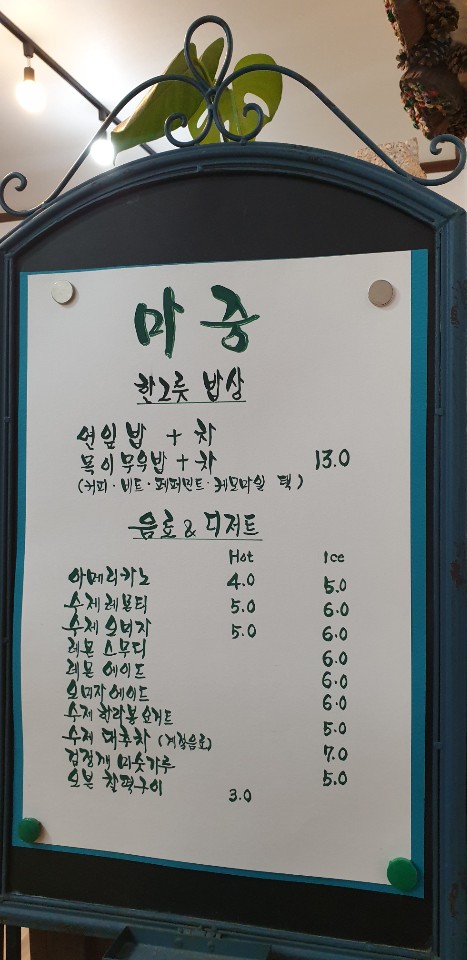 마중
한그릇 밥상
연잎밥 + 차
목이무우밥 + 차 13.0
(커피·비트·페퍼민트·케모마일 택)
음료 & 디저트
Hot Ice
아메리카노 4.0 5.0
수제 레몬티 5.0 6.0
수제 오미자 5.0 6.0
레몬 스무디 6.0
레몬 에이드 6.0
오미자 에이드 6.0
수제 한라봉 요거트 5.0
수제 대추차 (계절음료) 7.0
검정깨 미숫가루 5.0
오븐 찰떡구이 3.0